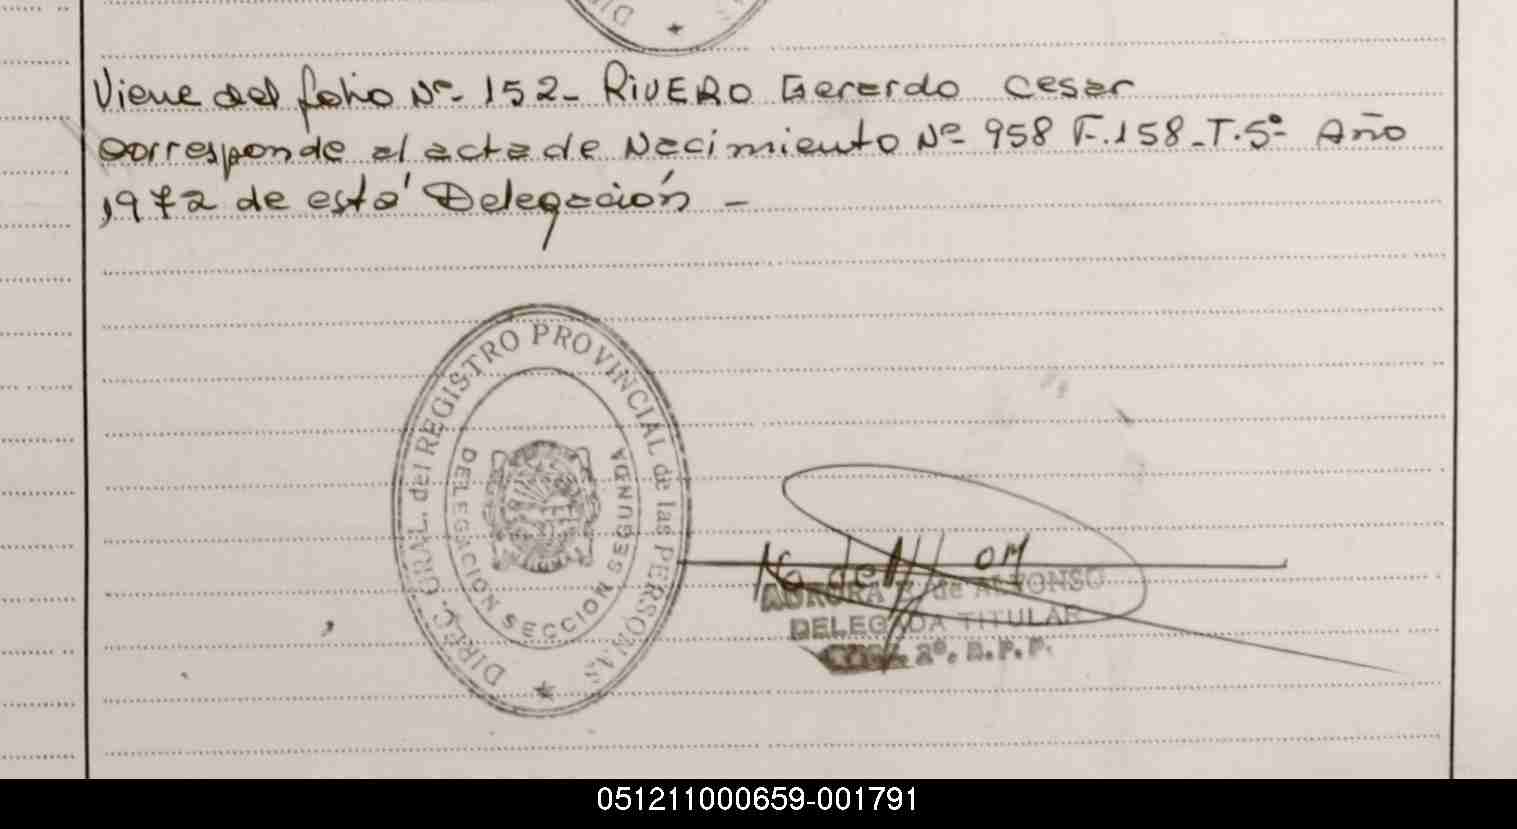 Viene del folio Nº- 152- RIVERO Gerardo Cesar
corresponde al acta de Nacimiento Nº- 958 F.158-T.5º- Año
1972 de está Delegación -
DIREC. GRAL. del REGISTRO PROVINCIAL de las PERSONAS
DELEGACION SECCION SEGUNDA
AURORA de ALFONSO
DELEGADA TITULAR
2º. R.P.P.
051211000659-001791